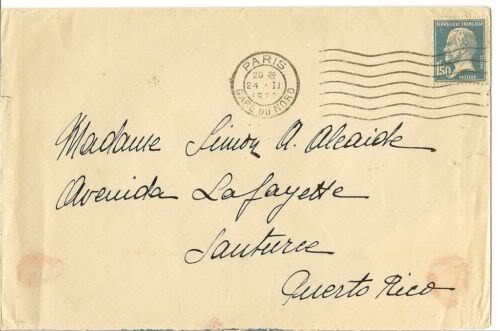 REPUBLIQUE FRANÇAISE
1F50
PASTEUR
PARIS
20 30
24 - II
GARE DU NORD
Madame Simon A. Alcaide
Avenida Lafayette
Santurce
Puerto Rico